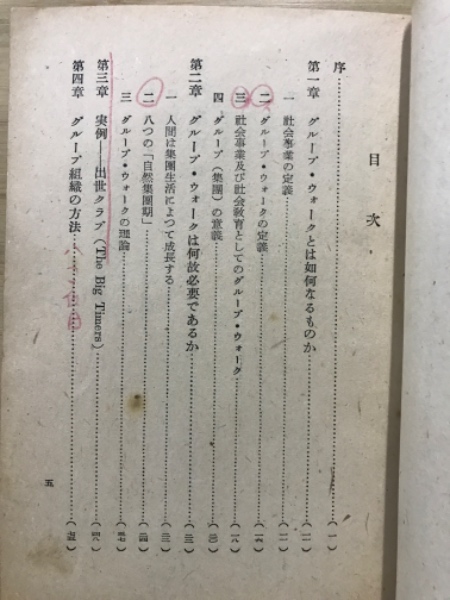 目次
序……………(一)
第一章 グループ・ウォークとは如何なるものか……………(一一)
一 社会事業の定義……………(一一)
二 グループ・ウォークの定義……………(一六)
三 社会事業及び社会教育としてのグループ・ウォーク……………(一八)
四 グループ(集團)の意義……………(三〇)
第二章 グループ・ウォークは何故必要であるか……………(三三)
一 人間は集團生活によつて成長する……………(三三)
二 八つの「自然集團期」……………(三四)
三 グループ・ウォークの理論……………(三七)
第三章 実例――出世クラブ(The Big Timers)……………(四八)
第四章 グループ組織の方法……………
五